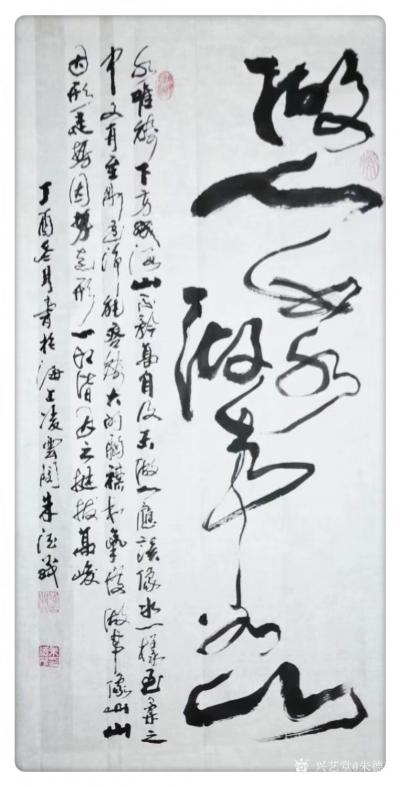 做人如水
做事如山
水唯能下方成海山不矜高自及天做人应该像水一样至柔之
中又有至刚至净能容能大的胸襟和气度做事像山山
因形造势因势造形一股潜在之挺拔高峻
丁酉冬月书于海上凌云阁朱德
兴艺堂@朱德